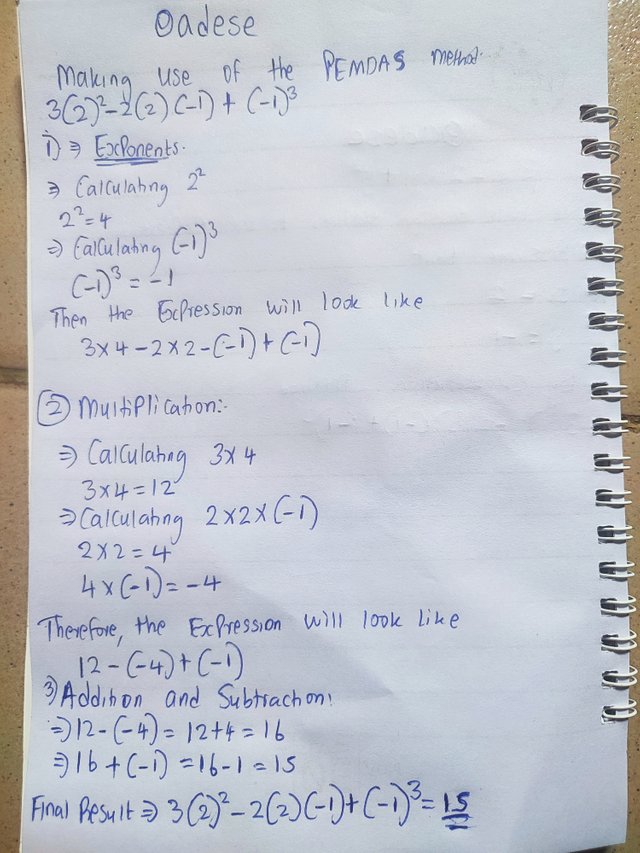 Oadese
Making use of the PEMDAS method.
3(2)²-2(2)(-1)+(-1)³
1) ⇒ Exponents.
⇒ Calculating 2²
2²=4
⇒ Calculating (-1)³
(-1)³ = -1
Then the Expression will look like
3×4-2×2-(-1)+(-1)
② Multiplication:-
⇒ Calculating 3×4
3×4=12
⇒ Calculating 2×2×(-1)
2×2=4
4×(-1)=-4
Therefore, the Expression will look like
12-(-4)+(-1)
3) Addition and Subtraction:
⇒ 12-(-4)= 12+4 = 16
⇒ 16+(-1) =16-1 = 15
Final Result ⇒ 3(2)²-2(2)(-1)+(-1)³= 15